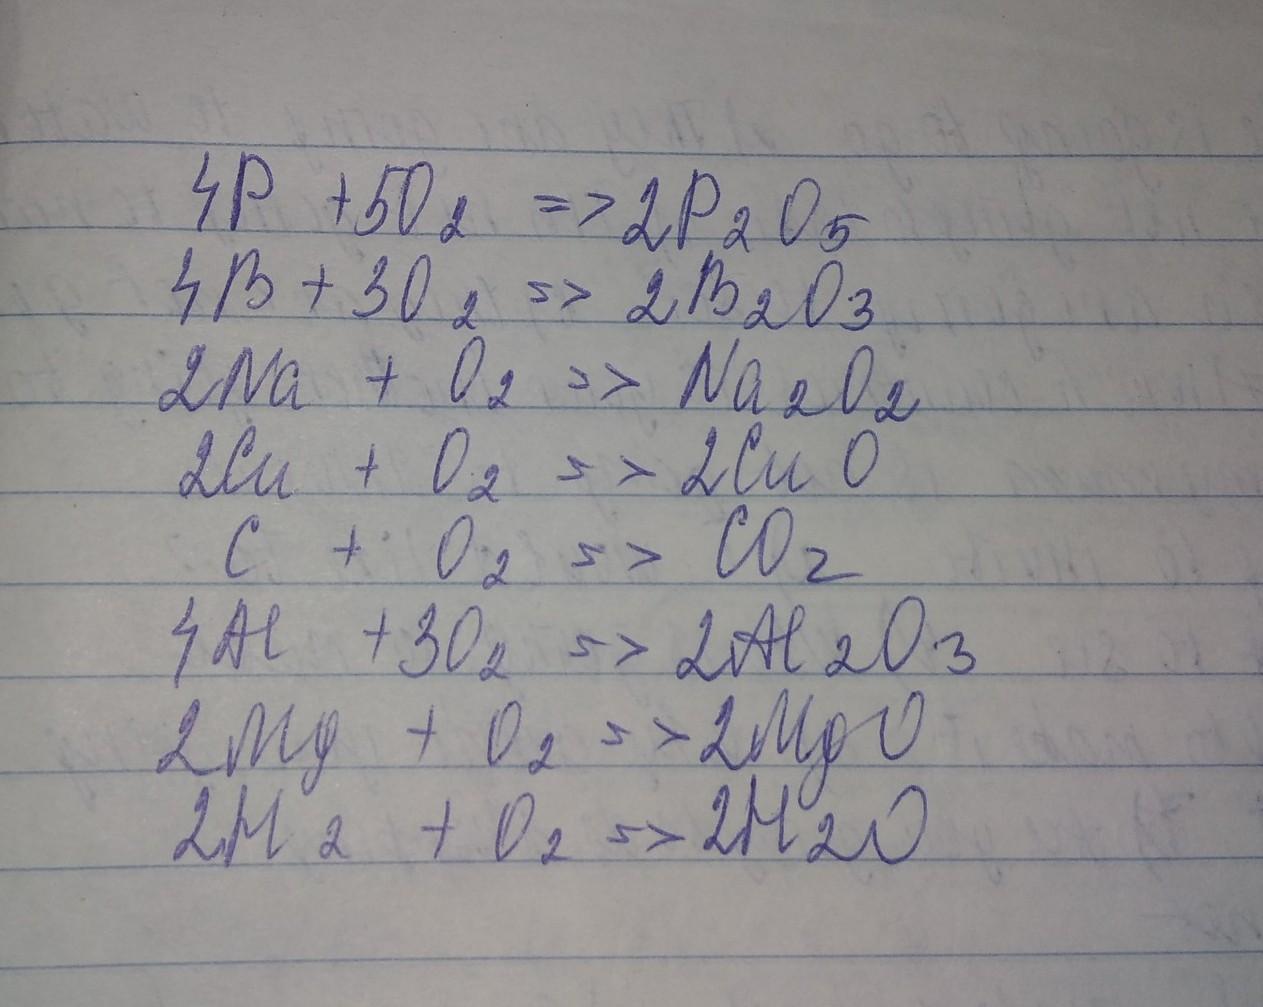 4P + 5O₂ => 2P₂O₅
4B + 3O₂ => 2B₂O₃
2Na + O₂ => Na₂O₂
2Cu + O₂ => 2CuO
C + O₂ => CO₂
4Al + 3O₂ => 2Al₂O₃
2Mg + O₂ => 2MgO
2H₂ + O₂ => 2H₂O